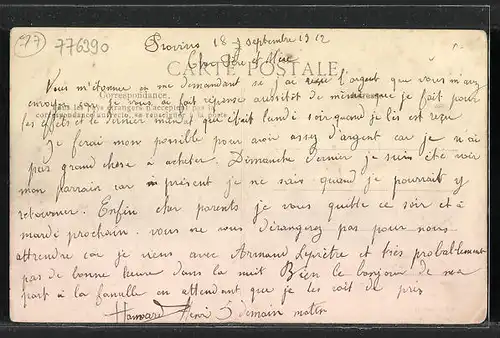 77
776390
Provins 18 septembre 1912
Cher Père et Mère
CARTE POSTALE
Vous m'étonner en me demandant si j'ai reçu l'argent que vous m'avez
Correspondance
envoyé que je vous ai fait réponse aussitôt de même que je fait pour
Tous les pays étrangers n'acceptent pas la
correspondance au recto, se renseigner à la poste
les effets et le dernier mandat que c'était lundi soir quand je les est reçu
Je ferai mon possible pour avoir assez d'argent car je n'ai
pas grand chose à acheter. Dimanche dernier je suis été voir
mon parrain car à présent je ne sais quand je pourrait y
retourner. Enfin cher parents je vous quitte ce soir et à
mardi prochain. vous ne vous dérangerez pas pour nous
attendre car je viens avec Armand Leprêtre et très probablement
pas de bonne heure dans la nuit Bien le bonjour de ma
part à la famille en attendant que je les voit de près
Henri 5 demain matin